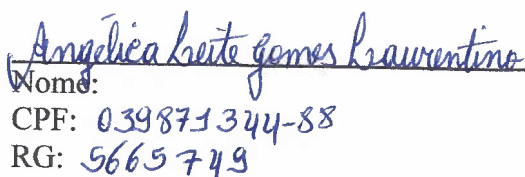 Angélica Leite Gomes Laurentino
Nome:
CPF: 039871344-88
RG: 5665749